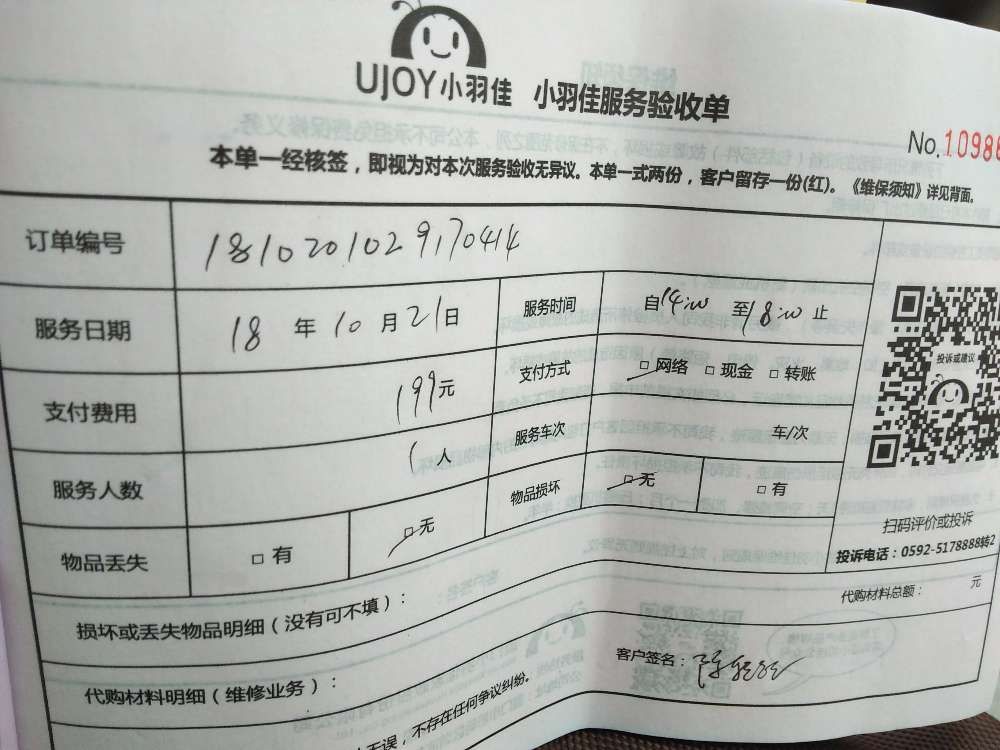 UJOY小羽佳 小羽佳服务验收单
No.10986
本单一经核签，即视为对本次服务验收无异议。本单一式两份，客户留存一份(红)。《维保须知》详见背面。
订单编号 181020102917041​4
服务日期 18 年 10 月 21 日 服务时间 自14:00 至18:00 止
支付费用 199元 支付方式 □网络 □现金 □转账
服务人数 1人 服务车次 车/次
物品丢失 □有 □无 物品损坏 □无 □有
投诉或建议
扫码评价或投诉
投诉电话：0592-5178888转2
损坏或丢失物品明细（没有可不填）：
代购材料总额： 元
代购材料明细（维修业务）：
客户签名：
无误，不存在任何争议纠纷。